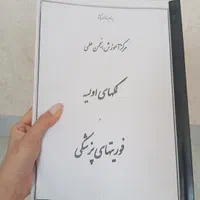 مرکز آموزش انجمن علمی
کمکهای اولیه
و
فوریتهای پزشکی